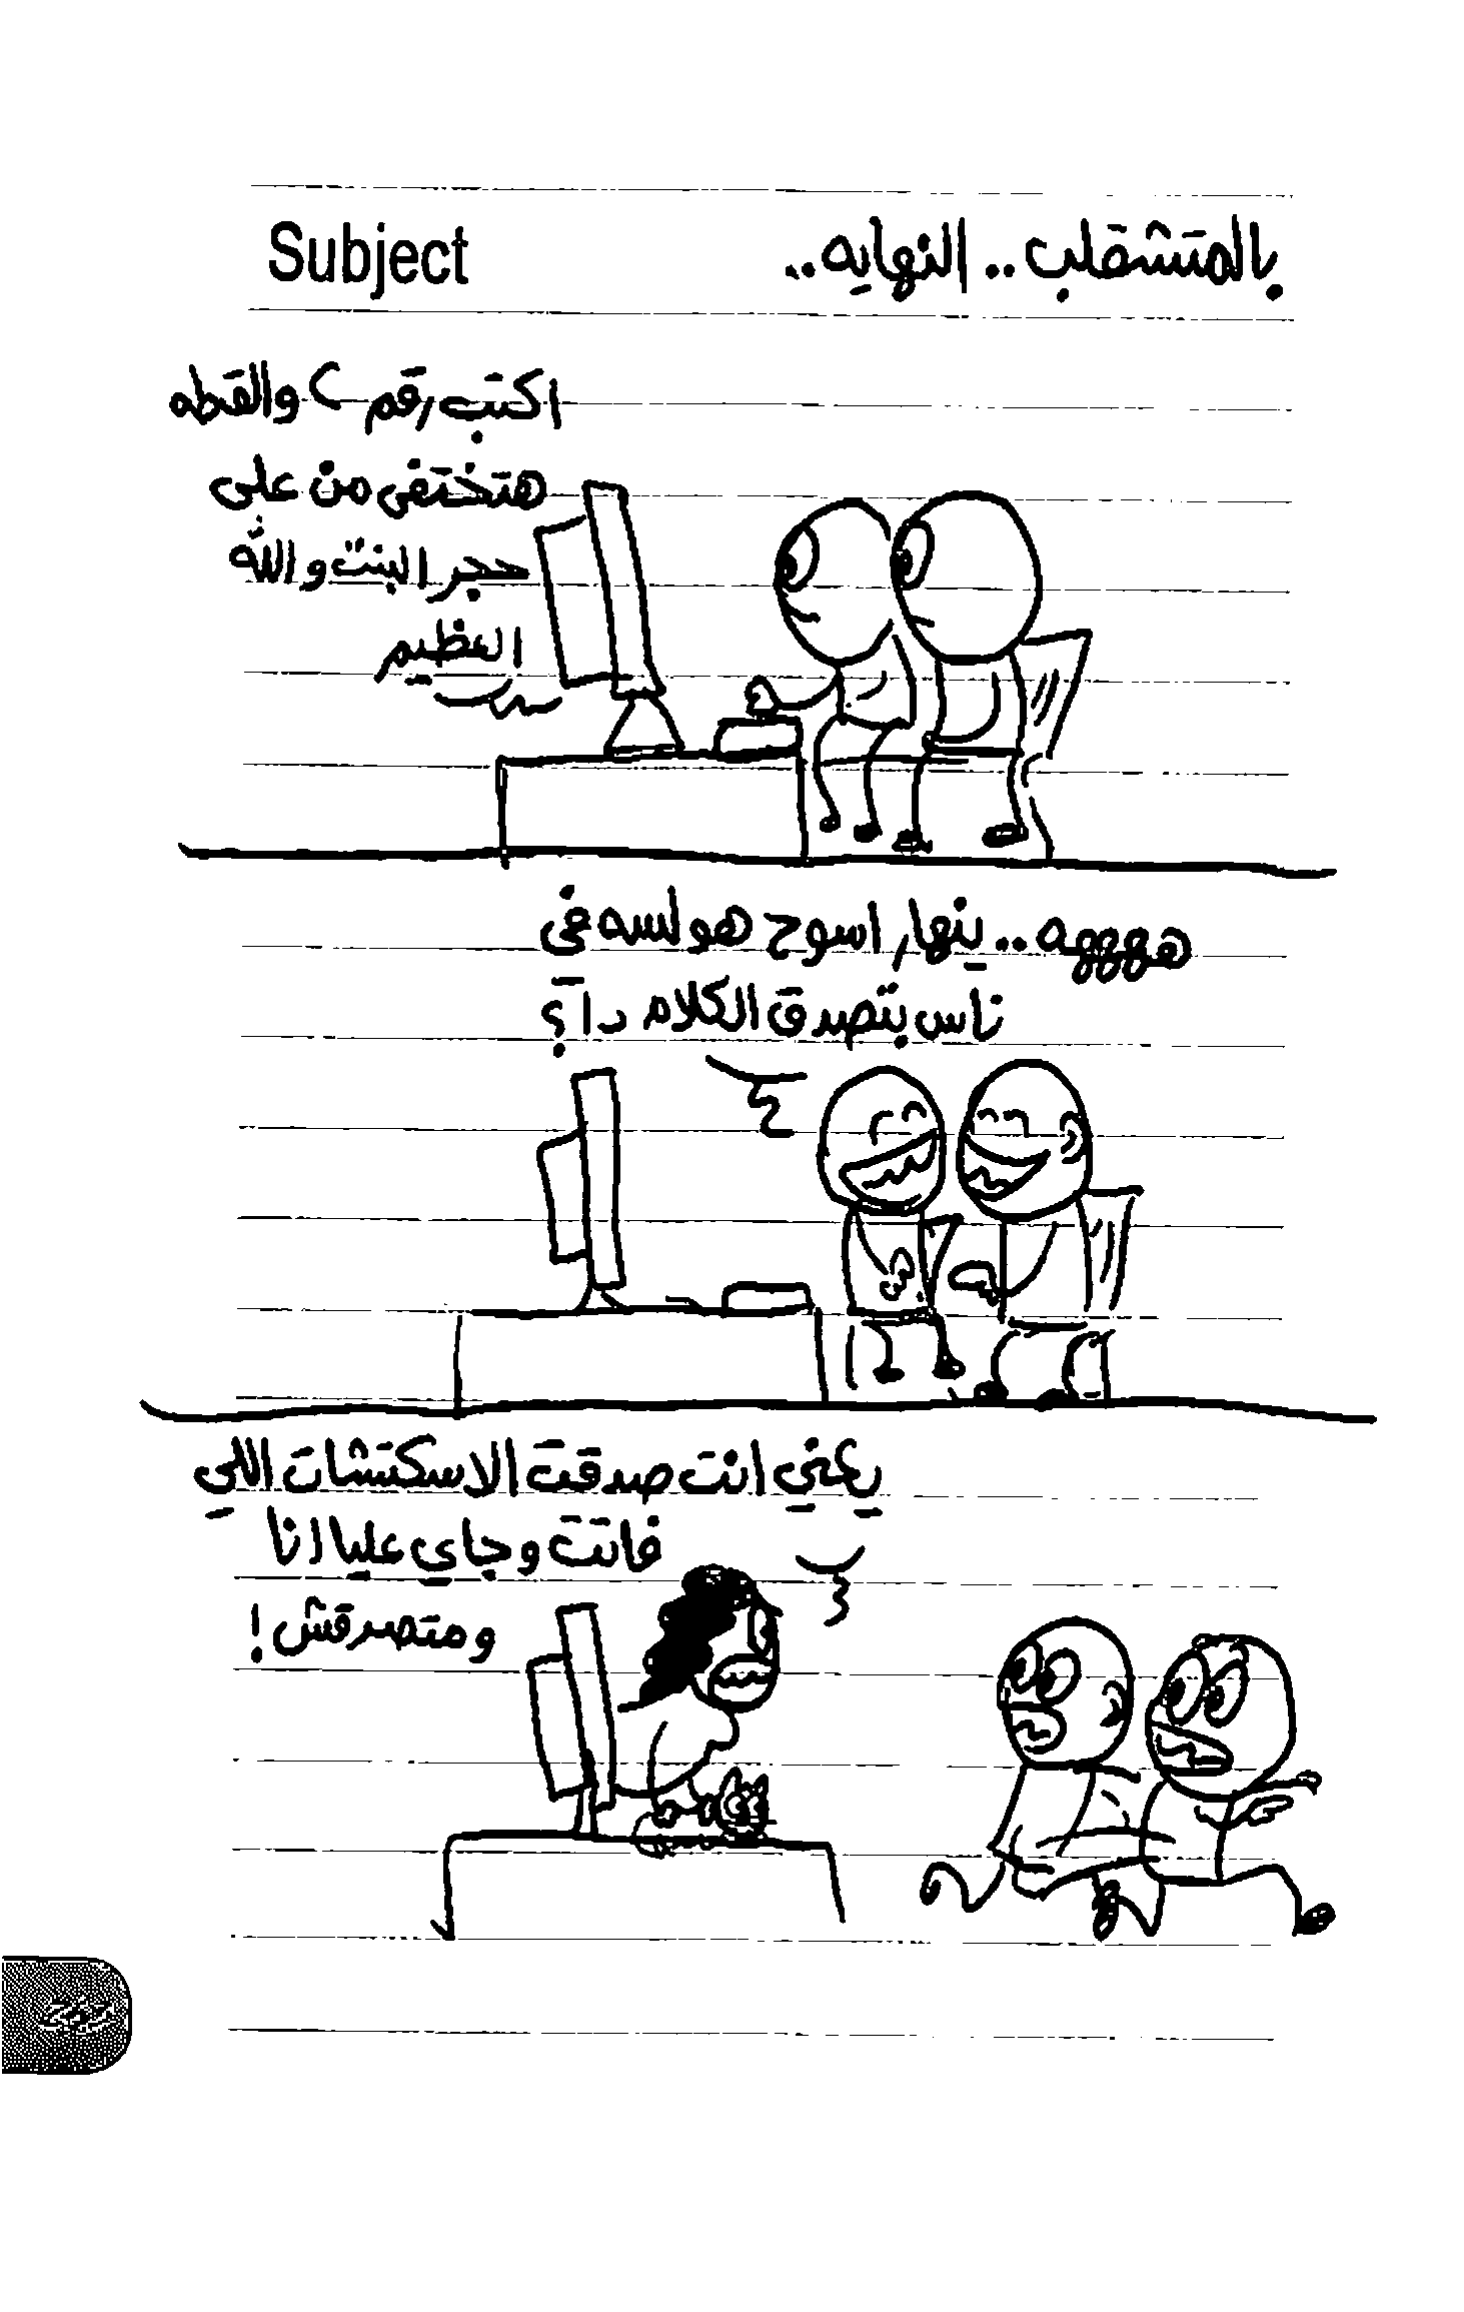 بالمتشقلب.. النهايه..
Subject
اكتب رقم ٢ والقطه
هتختفي من على
حجر البنت والله
العظيم
هههههه.. ينهار اسوح هو لسه في
ناس بتصدق الكلام دا؟
يعني انت صدقت الاسكتشات اللي
فاتت وجاي عليا انا
ومتصدقش!